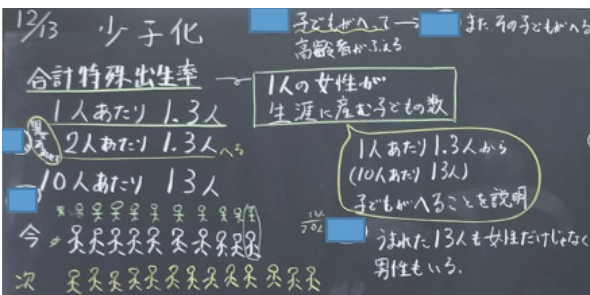 12/13 少子化
子どもがへって → また、その子どもがへる
高齢者がふえる
合計特殊出生率 — 1人の女性が
生涯に産む子どもの数
1人あたり 1.3人
2人あたり 1.3人 へる
10人あたり 13人
1人あたり1.3人から
(10人あたり 13人)
子どもがへることを説明
今
次
うまれた13人も女性だけじゃなく
男性もいる.